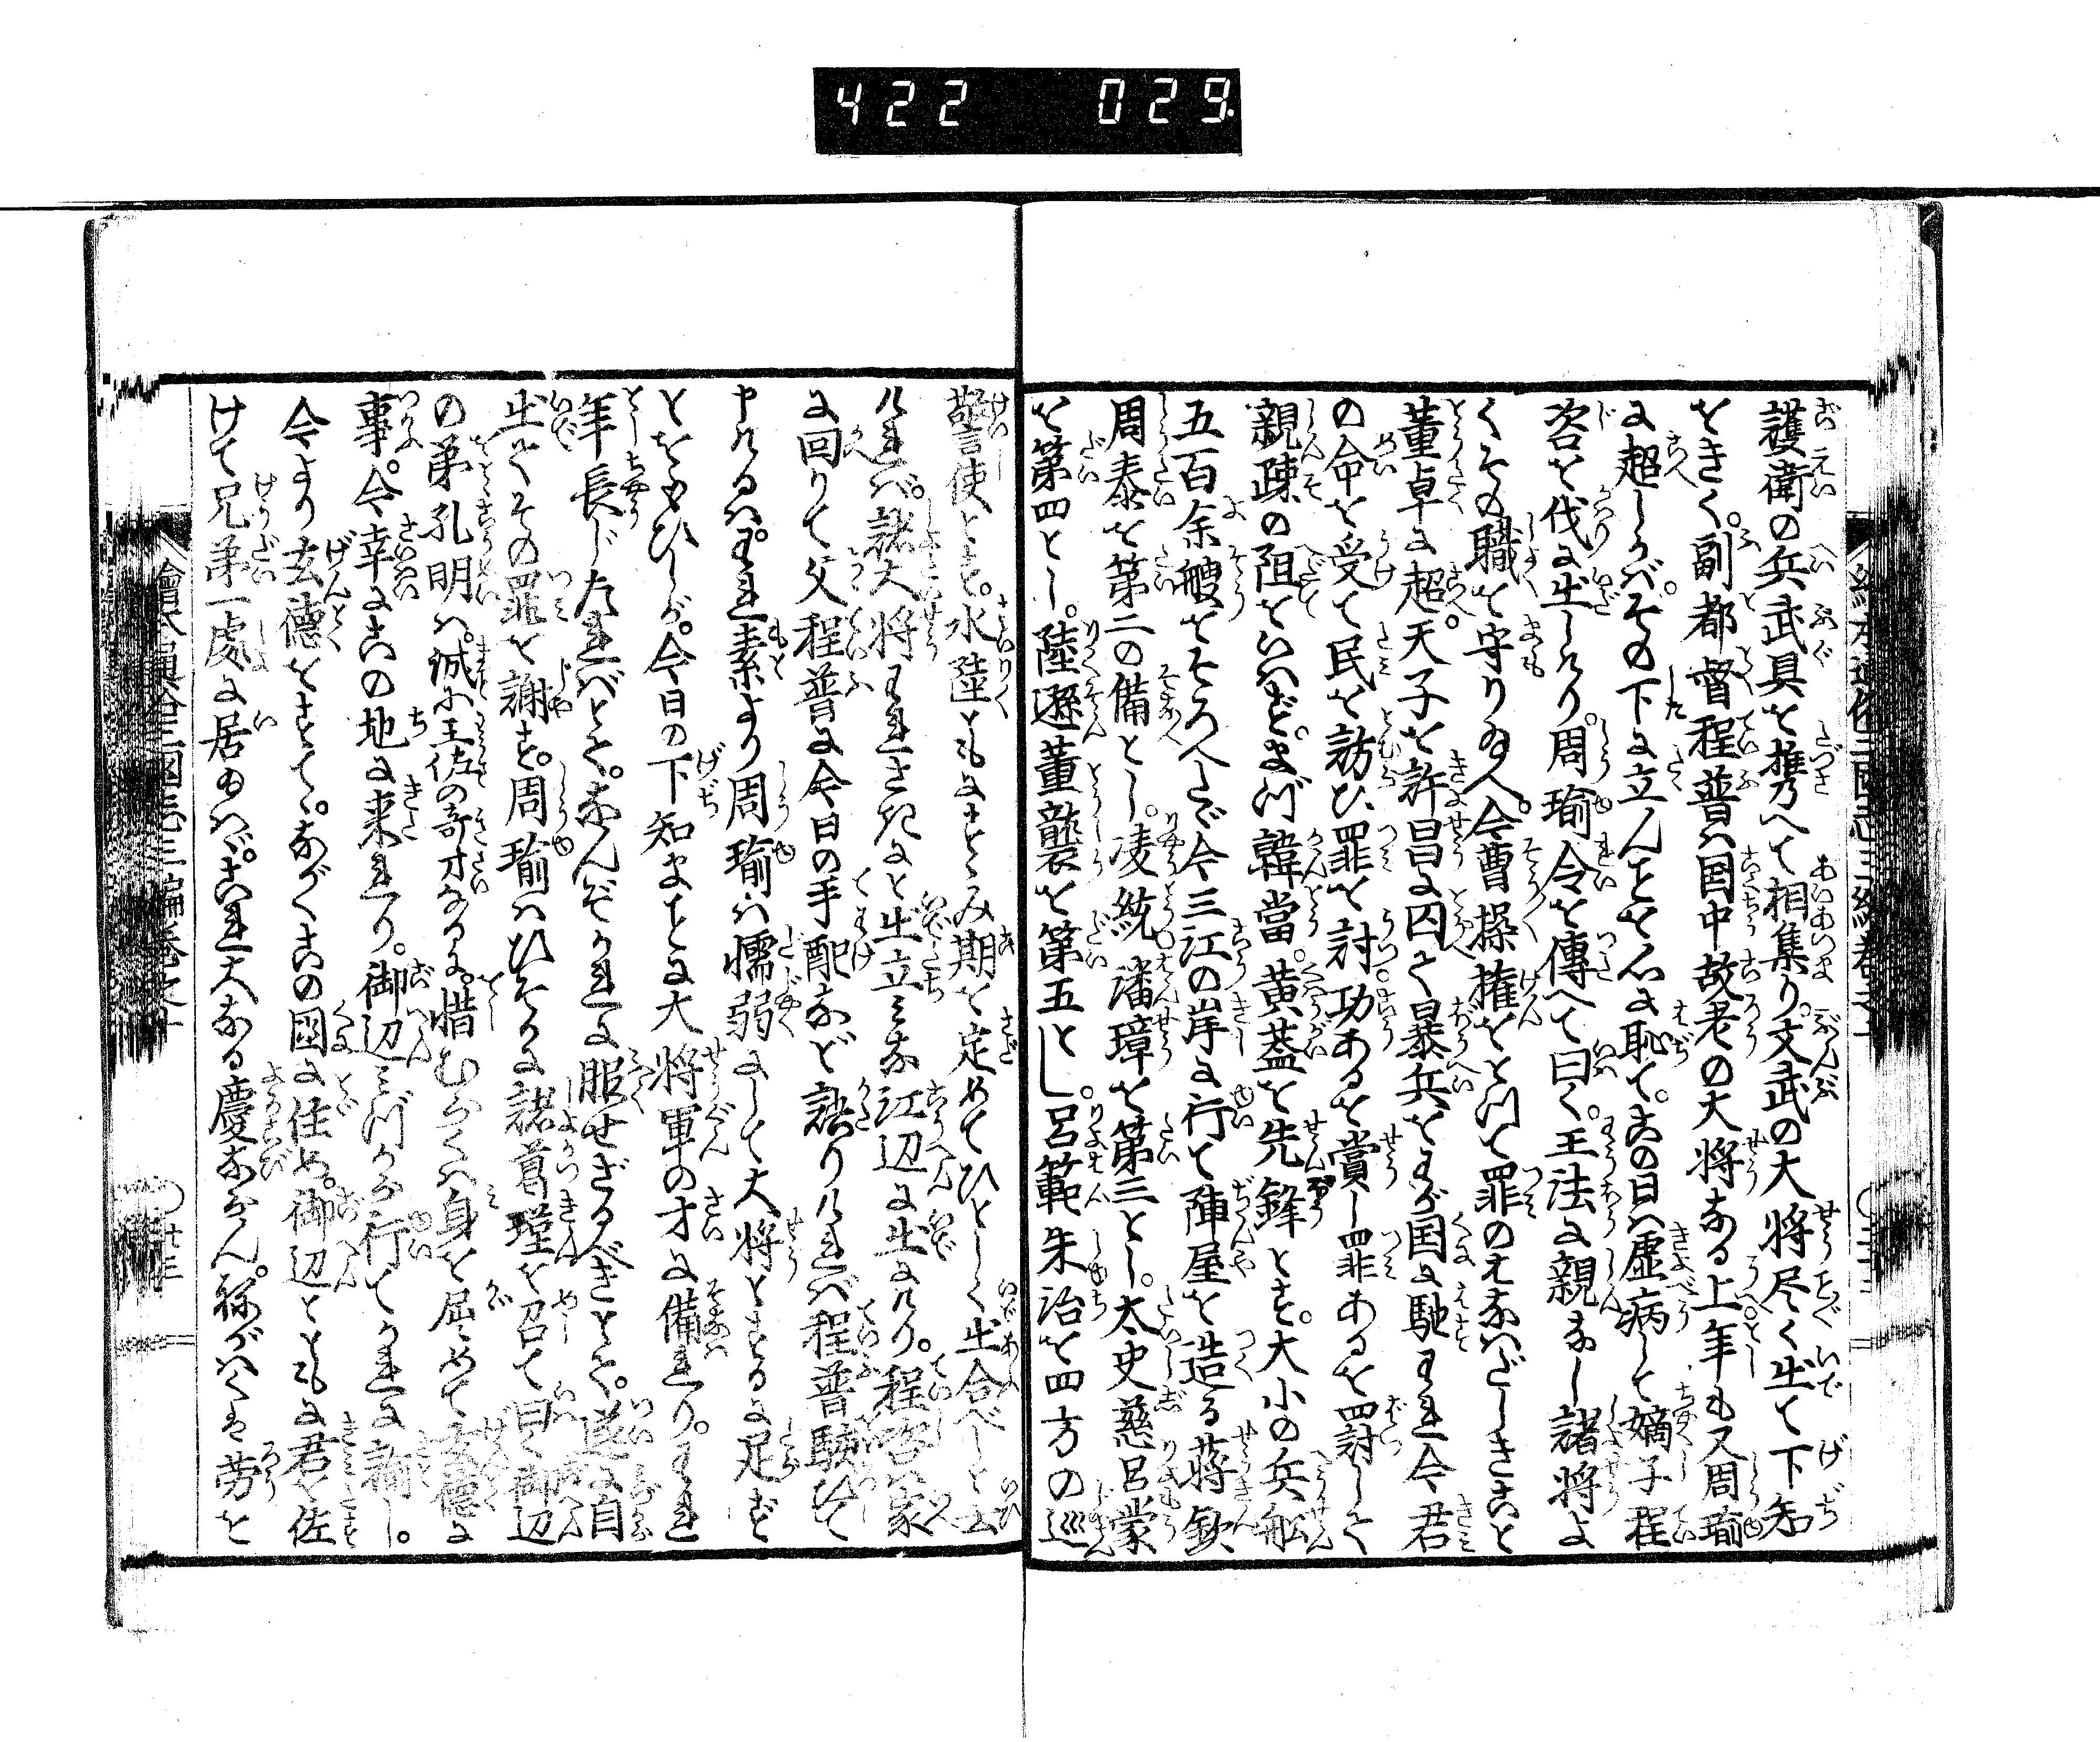 422 029
護衛の兵武具を携へて相集り。文武の大将尽く出て下知
をきく。副都督程普は国中故老の大将なる上年も又周瑜
に超しかば。その下に立んことを心に恥て。この日は虚病して嫡子程
咨を代に出しけり。周瑜令を傳へて曰く。王法に親なし諸将よ
くその職を守り給へ。今曹操權をとつて罪のえなはだしきこと
董卓に超。天子を許昌に囚て暴兵をわが国に馳われ今君
の命を受て民を訪ひ罪を討。功あるを賞し罪あるを罰して
親疎の阻をいへど。まづ韓當。黄蓋を先鋒とす。大小の兵舩
五百余艘をそろへたゞ今三江の岸に行て陣屋を造る蒋欽
周泰を第二の備とし。凌統潘璋を第三とし。太史慈呂蒙
を第四とし。陸遜董襲を第五とし。呂範朱治を四方の巡
警使とす。水陸ともにすゝみ期を定めてひとしく出合べしと云
ければ。諸大将われさきにと出立みな江辺に出にけり。程咨家
に回りて父程普に今日の手配など語りければ程普駭ひて
申けるはわれ素より周瑜は懦弱にして大将とするに足ず
とをもひしが。今日の下知まことに大将軍の才に備れり。われ
年長じたればとて。なんぞかれに服せざるべきとて。遂に自
出てその罪を謝す。周瑜はひそかに諸葛瑾を召て曰く御辺
の弟孔明は。誠に王佐の奇才なるに。惜むらくは身を屈めて玄徳に
事。今幸にこの地に来れり。御辺みづから行てかれに諭し。
今より玄徳をすて。ながくこの國に住め。御辺とともに君を佐
けて兄弟一處に居ゆかば。これ大なる慶ならん。ねがはくは労を
繪本通俗三國志三編巻之十